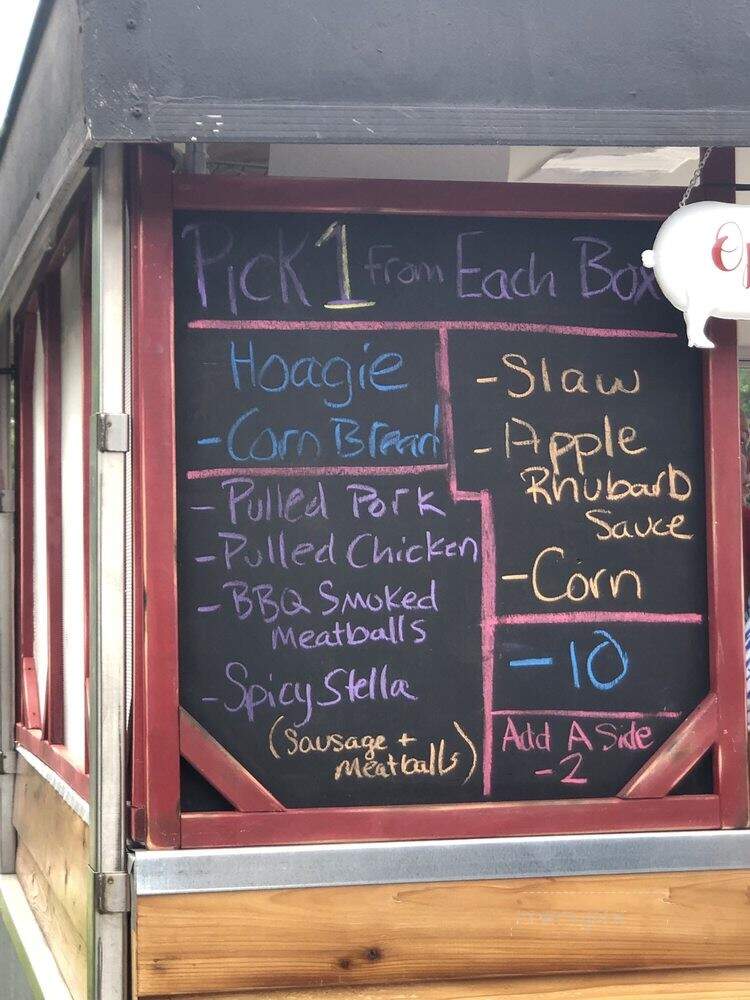 Pick 1 From Each Box
Hoagie
- Corn Bread
- Pulled Pork
- Pulled Chicken
- BBQ Smoked
Meatballs
- Spicy Stella
(Sausage +
Meatballs)
- Slaw
- Apple
Rhubarb
Sauce
- Corn
- 10
Add A Side
- 2